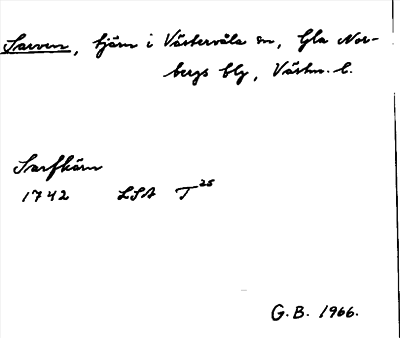 Sarven, tjärn i Västervåla sn, Gla Nor-
bergs blg, Västm. l.
Sarfkärn
1742 LSA T 25
G.B. 1966.